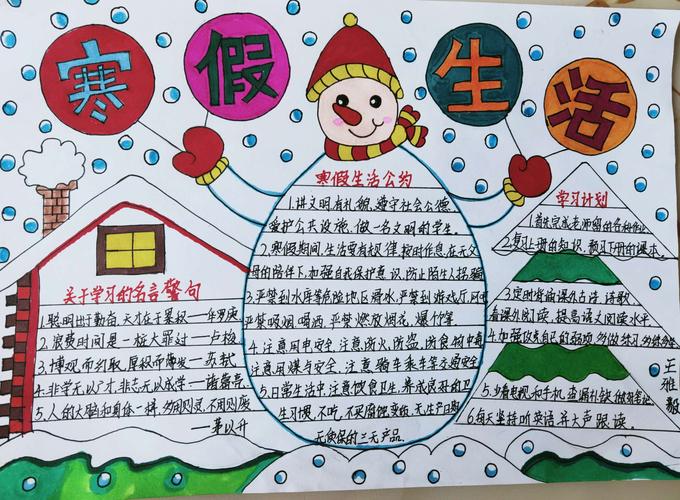 寒假生活
寒假生活公约
1.讲文明有礼貌,遵守社会公德,
爱护公共设施,做一名文明的学生。
2.寒假期间,生活要有规律,按时作息,在父
母的陪伴下,加强自我保护意识,防止陌生人拐骗
3.严禁到水库等危险地区滑冰,严禁到游戏厅网吧
严禁吸烟、喝酒,严禁燃放烟花、爆竹等.
4.注意用电安全、注意防火、防盗、防食物中毒
注意用煤气安全、注意骑车乘车等交通安全
5.日常生活中,注意饮食卫生、养成良好的卫
生习惯,不吃、不买腐蚀变质、无生产日期
无质保的三无产品.
关于学习的名言警句
1.聪明出于勤奋,天才在于累积——华罗庚.
2.浪费时间是一桩大罪过——卢梭
3.博观而约取,厚积而薄发——苏轼
4.非学无以广才,非志无以成学——诸葛亮
5.人的大脑和身体一样,多用则灵,不用则废
——茅以升
学习计划
1.首先完成老师留的各种作业
2.复习上册的知识,预习下册的课本.
3.定时背诵课外古诗、诗歌,
看课外阅读、提高语文阅读水平,
4.加强改善自己的弱项,多做练习,多练
5.少看电视和手机,查漏补缺,做好笔记
6.每天坚持听英语并大声跟读.
王雅毅